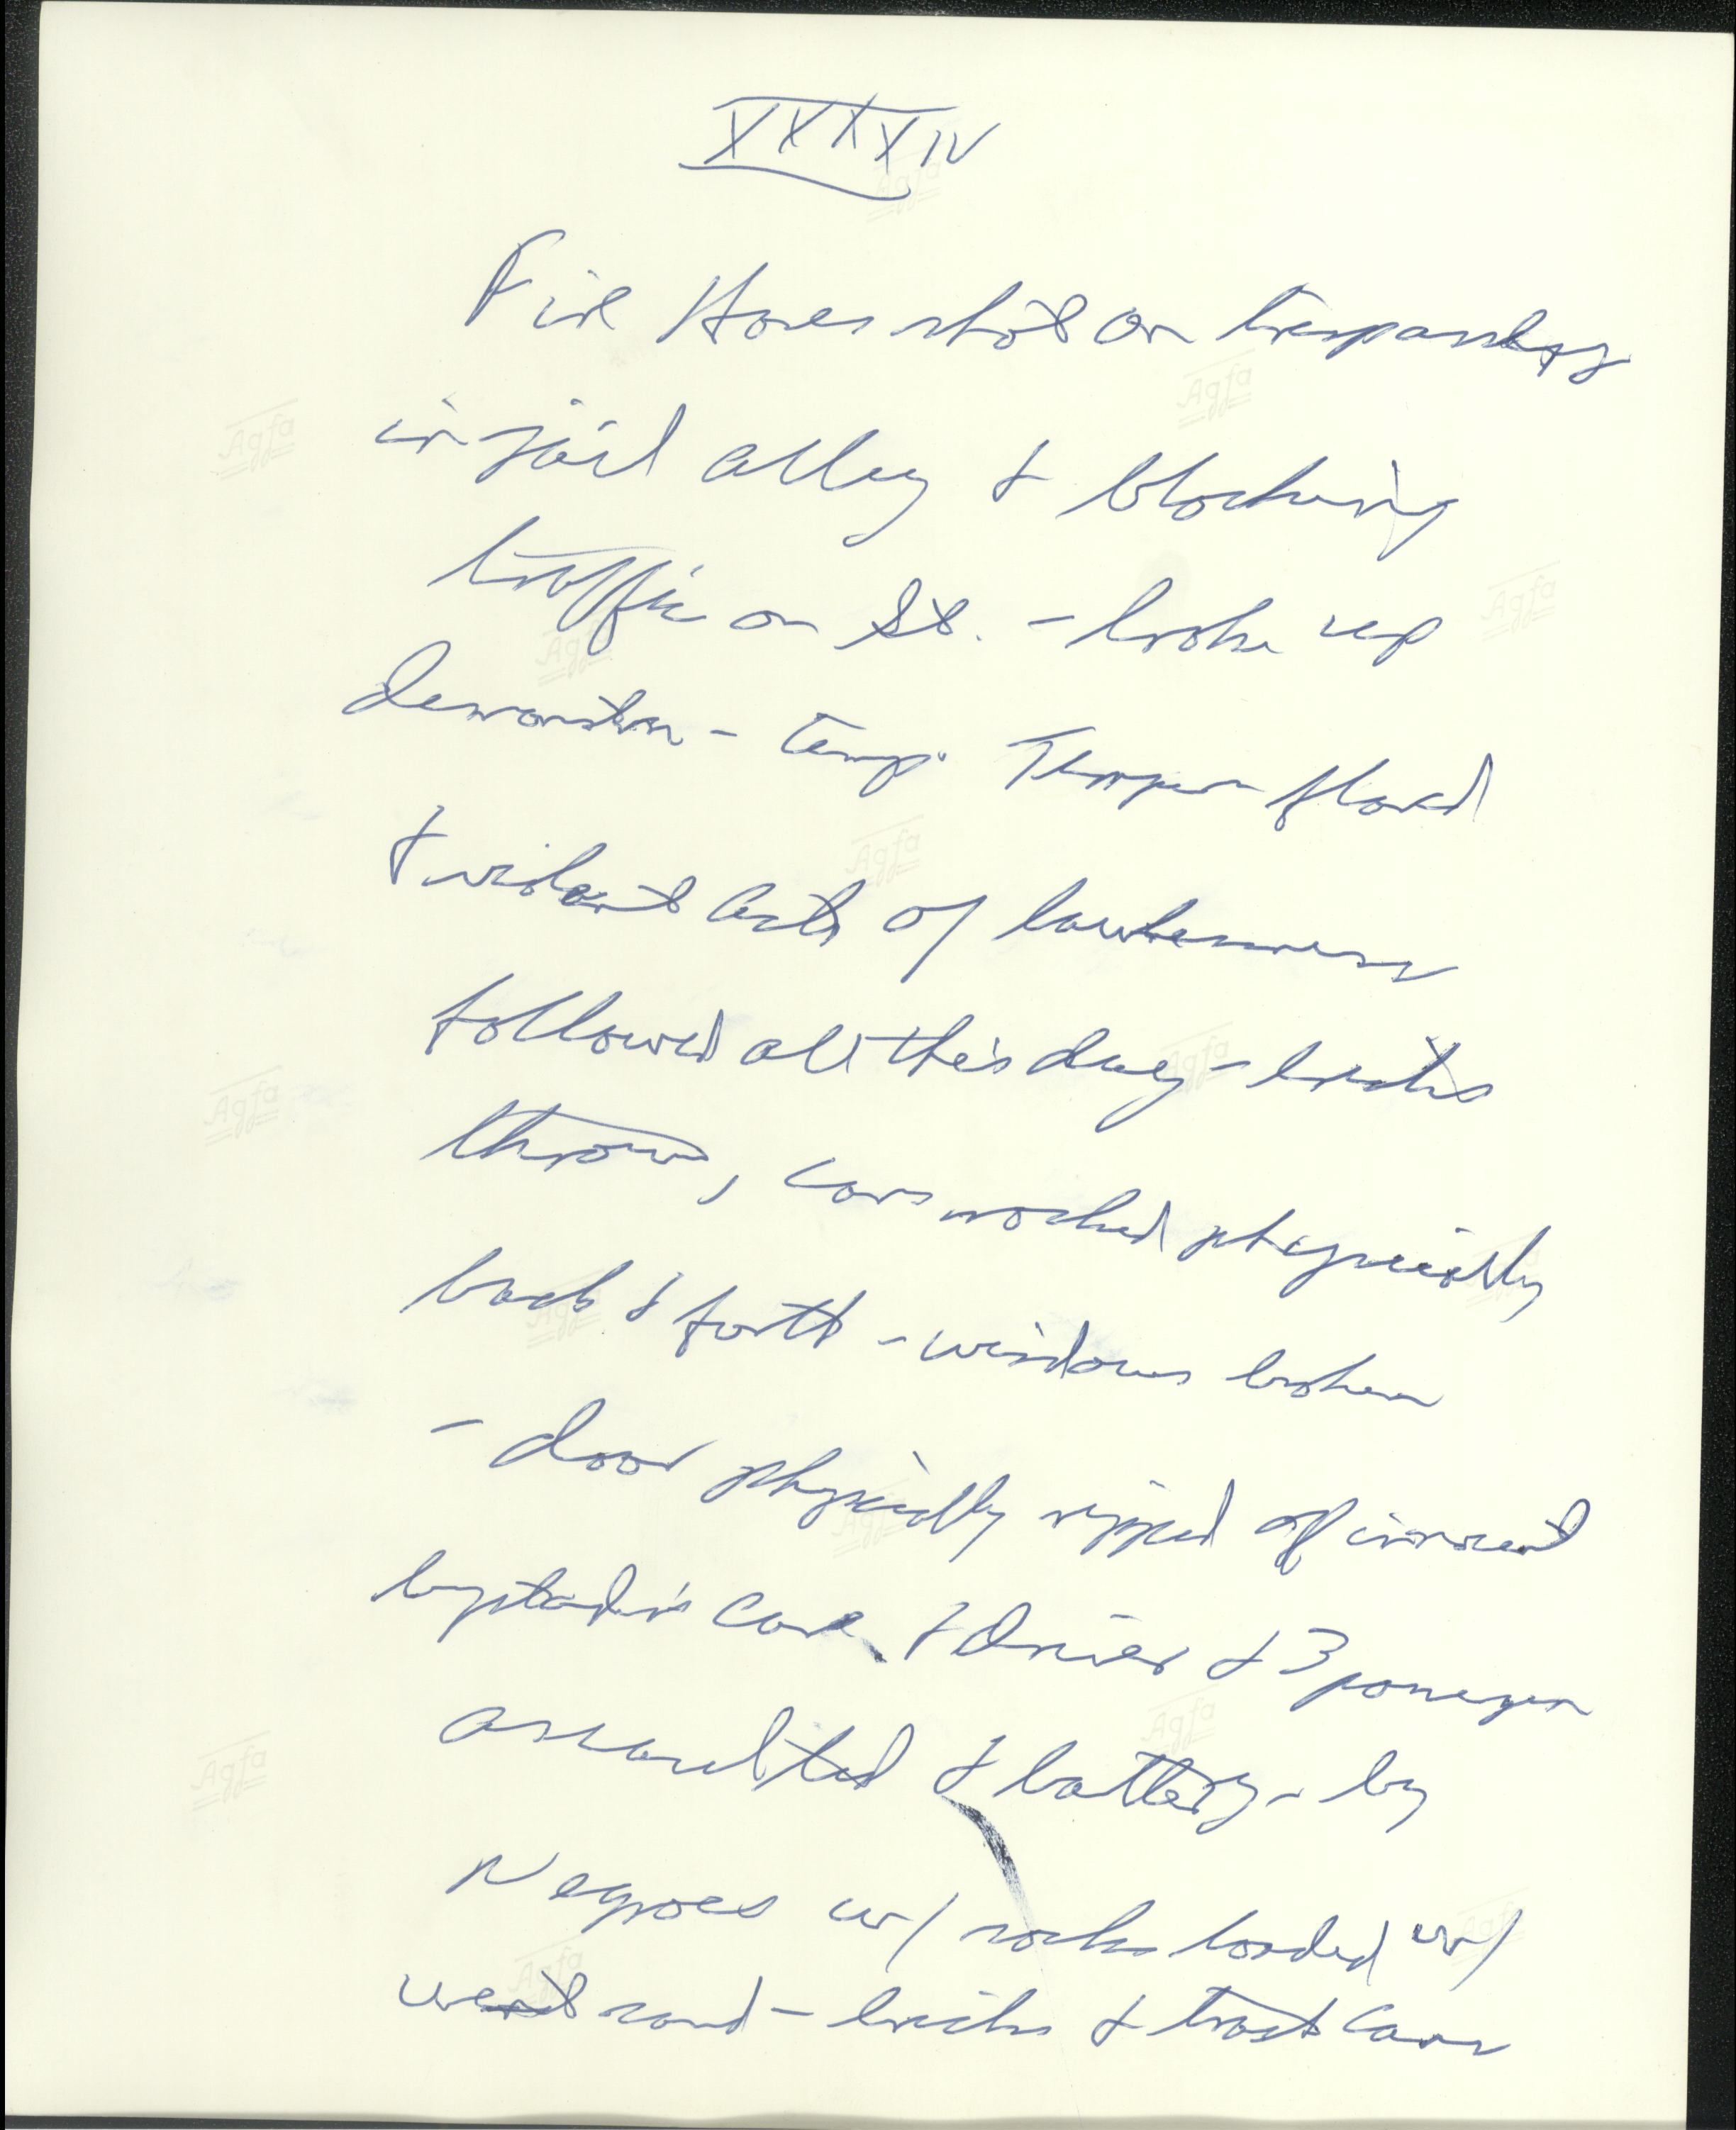 XXXXIV
Fire Hoses shot on trespassers
in jail alley & blocking
traffic on St. - broke up
demonstn - temp. Temper flared
& violent acts of lawlessness
followed all this day - bricks
thrown, cars rocked physically
back & forth - windows broken
- door physically ripped off innocent
bystander's car & Driver & 3 passengers
assaulted & battery - by
Negroes w/ socks loaded w/
wet sand - bricks & trash cans